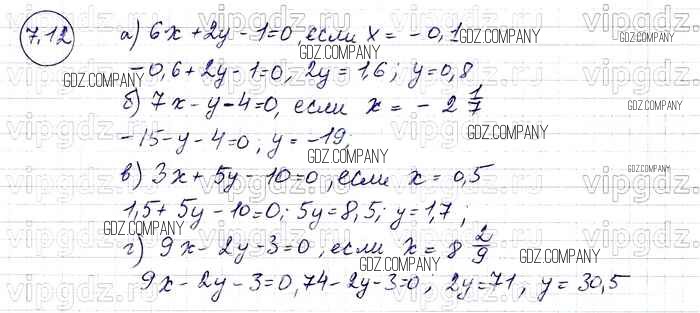 7.12 а) 6x + 2y - 1=0, если x = - 0,1
-0,6+2y-1=0, 2y = 1,6; y=0,8
б) 7x - y - 4=0, если x = - 2 1/7
-15-y-4=0; y=-19;
в) 3x+5y-10=0, если x = 0,5
1,5+5y-10=0; 5y=8,5; y=1,7;
г) 9x-2y-3=0, если x = 8 2/9
9x-2y-3=0, 74-2y-3=0, 2y=71, y=30,5
GDZ.COMPANY
GDZ.COMPANY
GDZ.COMPANY
GDZ.COMPANY
GDZ.COMPANY
GDZ.COMPANY
GDZ.COMPANY
GDZ.COMPANY
GDZ.COMPANY
GDZ.COMPANY
GDZ.COMPANY
GDZ.COMPANY
GDZ.COMPANY